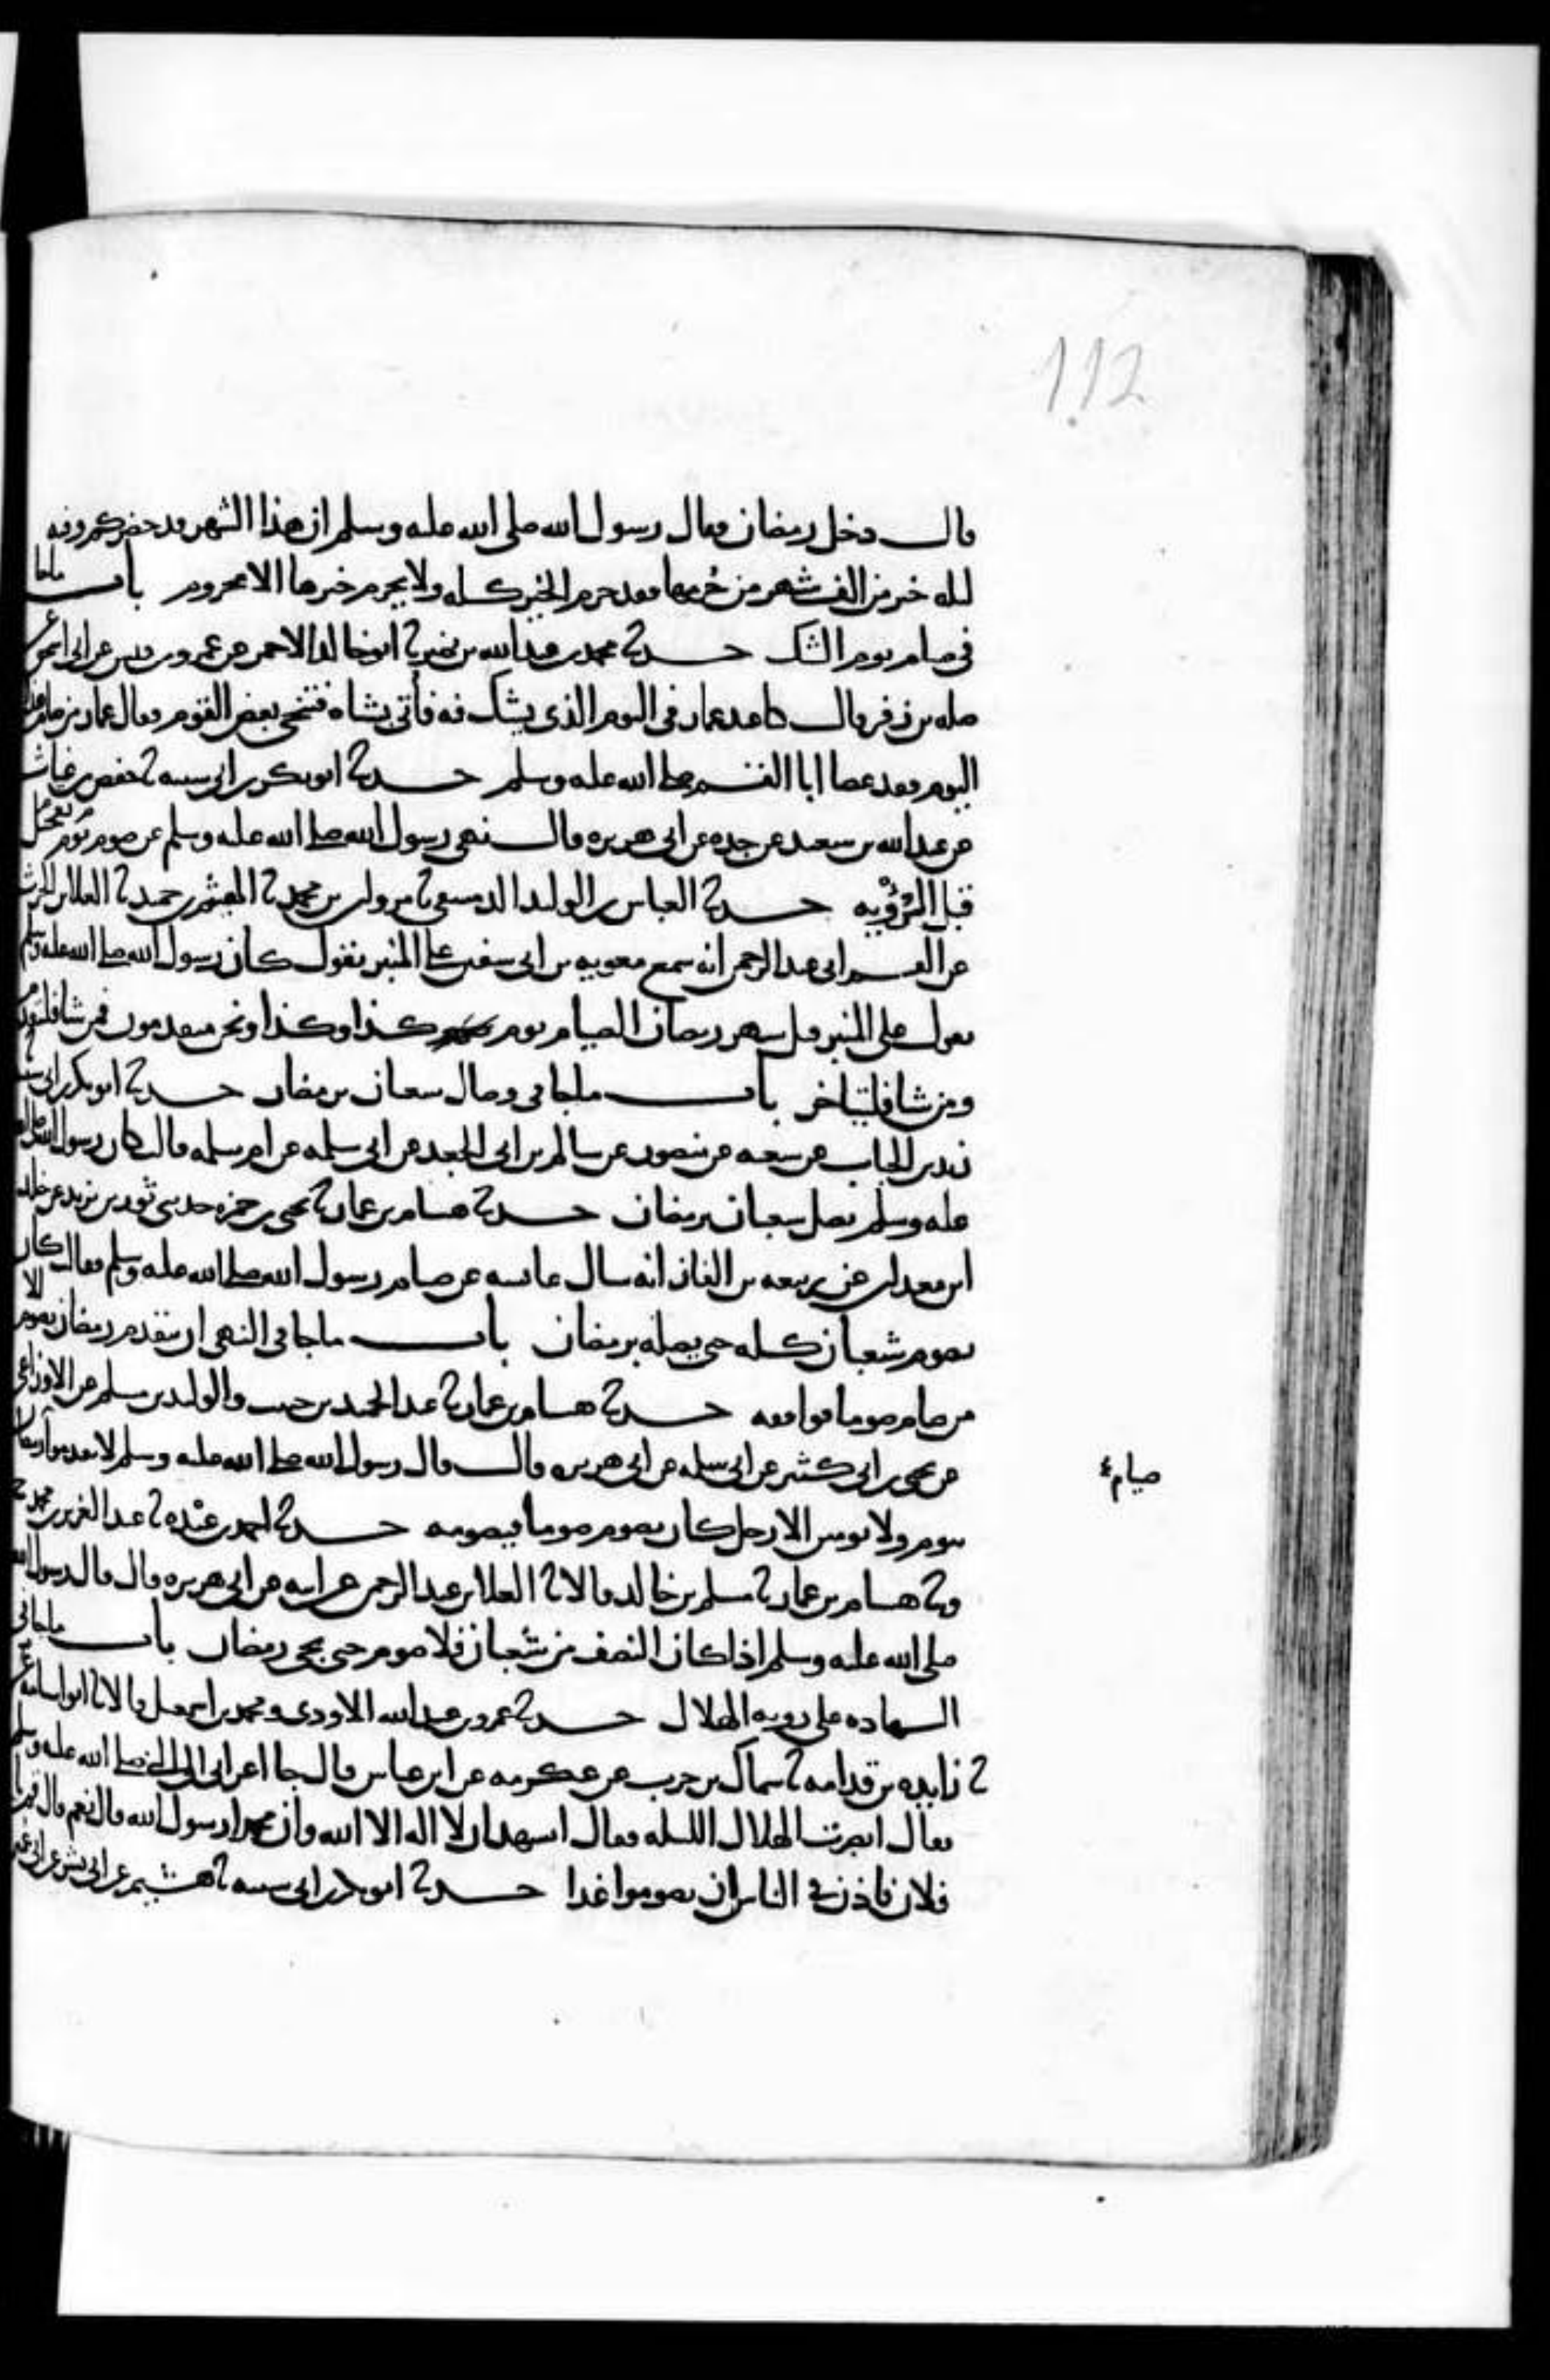 112
قال دخل رمضان فقال رسول الله صلى الله عليه وسلم ان هذا الشهر قد حضركم وفيه
ليلة خير من الف شهر من حُرمها فقد حرم الخير كله ولا يحرم خيرها الا محروم باب ماجا
في صيام يوم الشك حدثنا محمد بن عبد الله بن نمير ثنا ابو خالد الاحمر عن عمرو بن قيس عن ابي اسحق عن
صله بن زفر قال كنا عند عمار في اليوم الذي يشك فيه فأتي بشاه فتنحى بعض القوم فقال عمار من صام هذا
اليوم فقد عصا ابا القسم صلى الله عليه وسلم حدثنا ابو بكر بن ابي شيبه ثنا حفص بن غياث
عن عبد الله بن سعيد عن جده عن ابي هريره قال نهى رسول الله صلى الله عليه وسلم عن تعجيل صوم يوم
قبل الرؤيه حدثنا العباس بن الوليد الدمشقي ثنا مروان بن محمد ثنا الهيثم بن حميد ثنا العلا بن الحرث
عن القسم ابي عبد الرحمن انه سمع معويه بن ابي سفين على المنبر يقول كان رسول الله صلى الله عليه وسلم
يقول على المنبر قبل شهر رمضان الصيام يوم كذا وكذا ونحن متقدمون فمن شا فليتقدم
ومن شا فليتاخر باب ماجا في وصال شعبان برمضان حدثنا ابو بكر بن ابي شيبه ثنا
زيد بن الحباب عن شعبه عن منصور عن سالم بن ابي الجعد عن ابي سلمه عن ام سلمه قالت كان رسول الله صلى الله
عليه وسلم يصل شعبان برمضان حدثنا هشام بن عمار ثنا يحيى بن حمزه حدثني ثور بن يزيد عن خالد
ابن معدان عن ربيعه بن الغاز انه سال عايشه عن صيام رسول الله صلى الله عليه وسلم فقالت كان
يصوم شعبان كله حتى يصله برمضان باب ماجا في النهي ان يتقدم رمضان بصوم الا
من صام صوما فوافقه حدثنا هشام بن عمار ثنا عبد الحميد بن حبيب والوليد بن مسلم عن الاوزاعي
عن يحيى بن ابي كثير عن ابي سلمه عن ابي هريره قال قال رسول الله صلى الله عليه وسلم لا تقدموا رمضان
صيام ٤
بيوم ولا يومين الا رجل كان يصوم صوما فيصومه حدثنا احمد بن عبْده ثنا عبد العزيز بن محمد ح
وثنا هشام بن عمار ثنا مسلم بن خالد قالا ثنا العلا بن عبد الرحمن عن ابيه عن ابي هريره قال قال رسول الله
صلى الله عليه وسلم اذا كان النصف من شعبان فلا صوم حتى يجي رمضان باب ماجا في
الشهاده على رويه الهلال حدثنا عمرو بن عبد الله الاودي ومحمد بن اسمعيل قالا ثنا ابو اسامه
ثنا زايده بن قدامه ثنا سماك بن حرب عن عكرمه عن ابن عباس قال جا اعرابي الى النبي صلى الله عليه وسلم
فقال ابصرت الهلال الليله فقال اتشهد ان لا اله الا الله وان محمدا رسول الله قال نعم قال قم يا
فلان فاذن في الناس ان يصوموا غدا حدثنا ابو بكر بن ابي شيبه ثنا هشيم عن ابي بشر عن ابي عمير